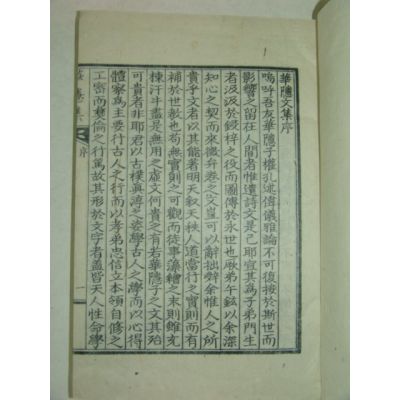 華隱文集序
嗚呼吾友華隱子權孔述偉儀雅論不可復接於斯世而
影響之留在人間者惟遺詩文是已耶宜其爲子弟門生
者汲汲於鋟梓之役而圖傳於永世也厥弟午鉉以余深
知心之契而來徵弁卷之文豈可以辭拙辭余惟人之所
貴乎文者以其能著明天敍天秩人道當行之實則而有
補於世敎也苟無實則之可觀而從事藻繪之末則雖充
棟汗牛盡是無用之虛文何貴之有若華隱子之文其殆
可貴者非耶君以古樸眞淳之姿學古人之學而以心得
體察爲主要行古人之行而以孝弟忠信立本領自修之
工密而彛倫之行篤故其形於文字者蓋皆天人性命學
序
一